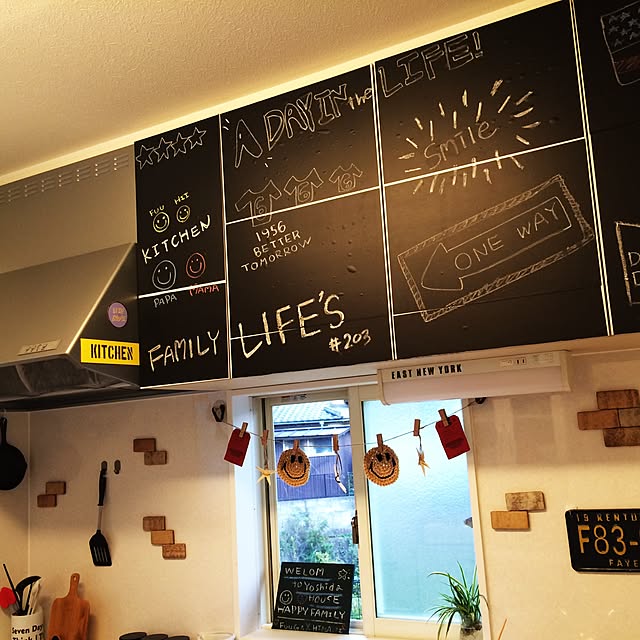 A DAY IN the LIFE!
FUU HII
KITCHEN
PAPA MAMA
FAMILY
16 16 16
1956
BETTER
TOMORROW
LIFE'S
#203
Smile
ONE WAY
KITCHEN
EAST NEW YORK
WELOM
to Yoshida
HOUCE
HAPPY FAMILY
Seven Day
F83-
FAYE